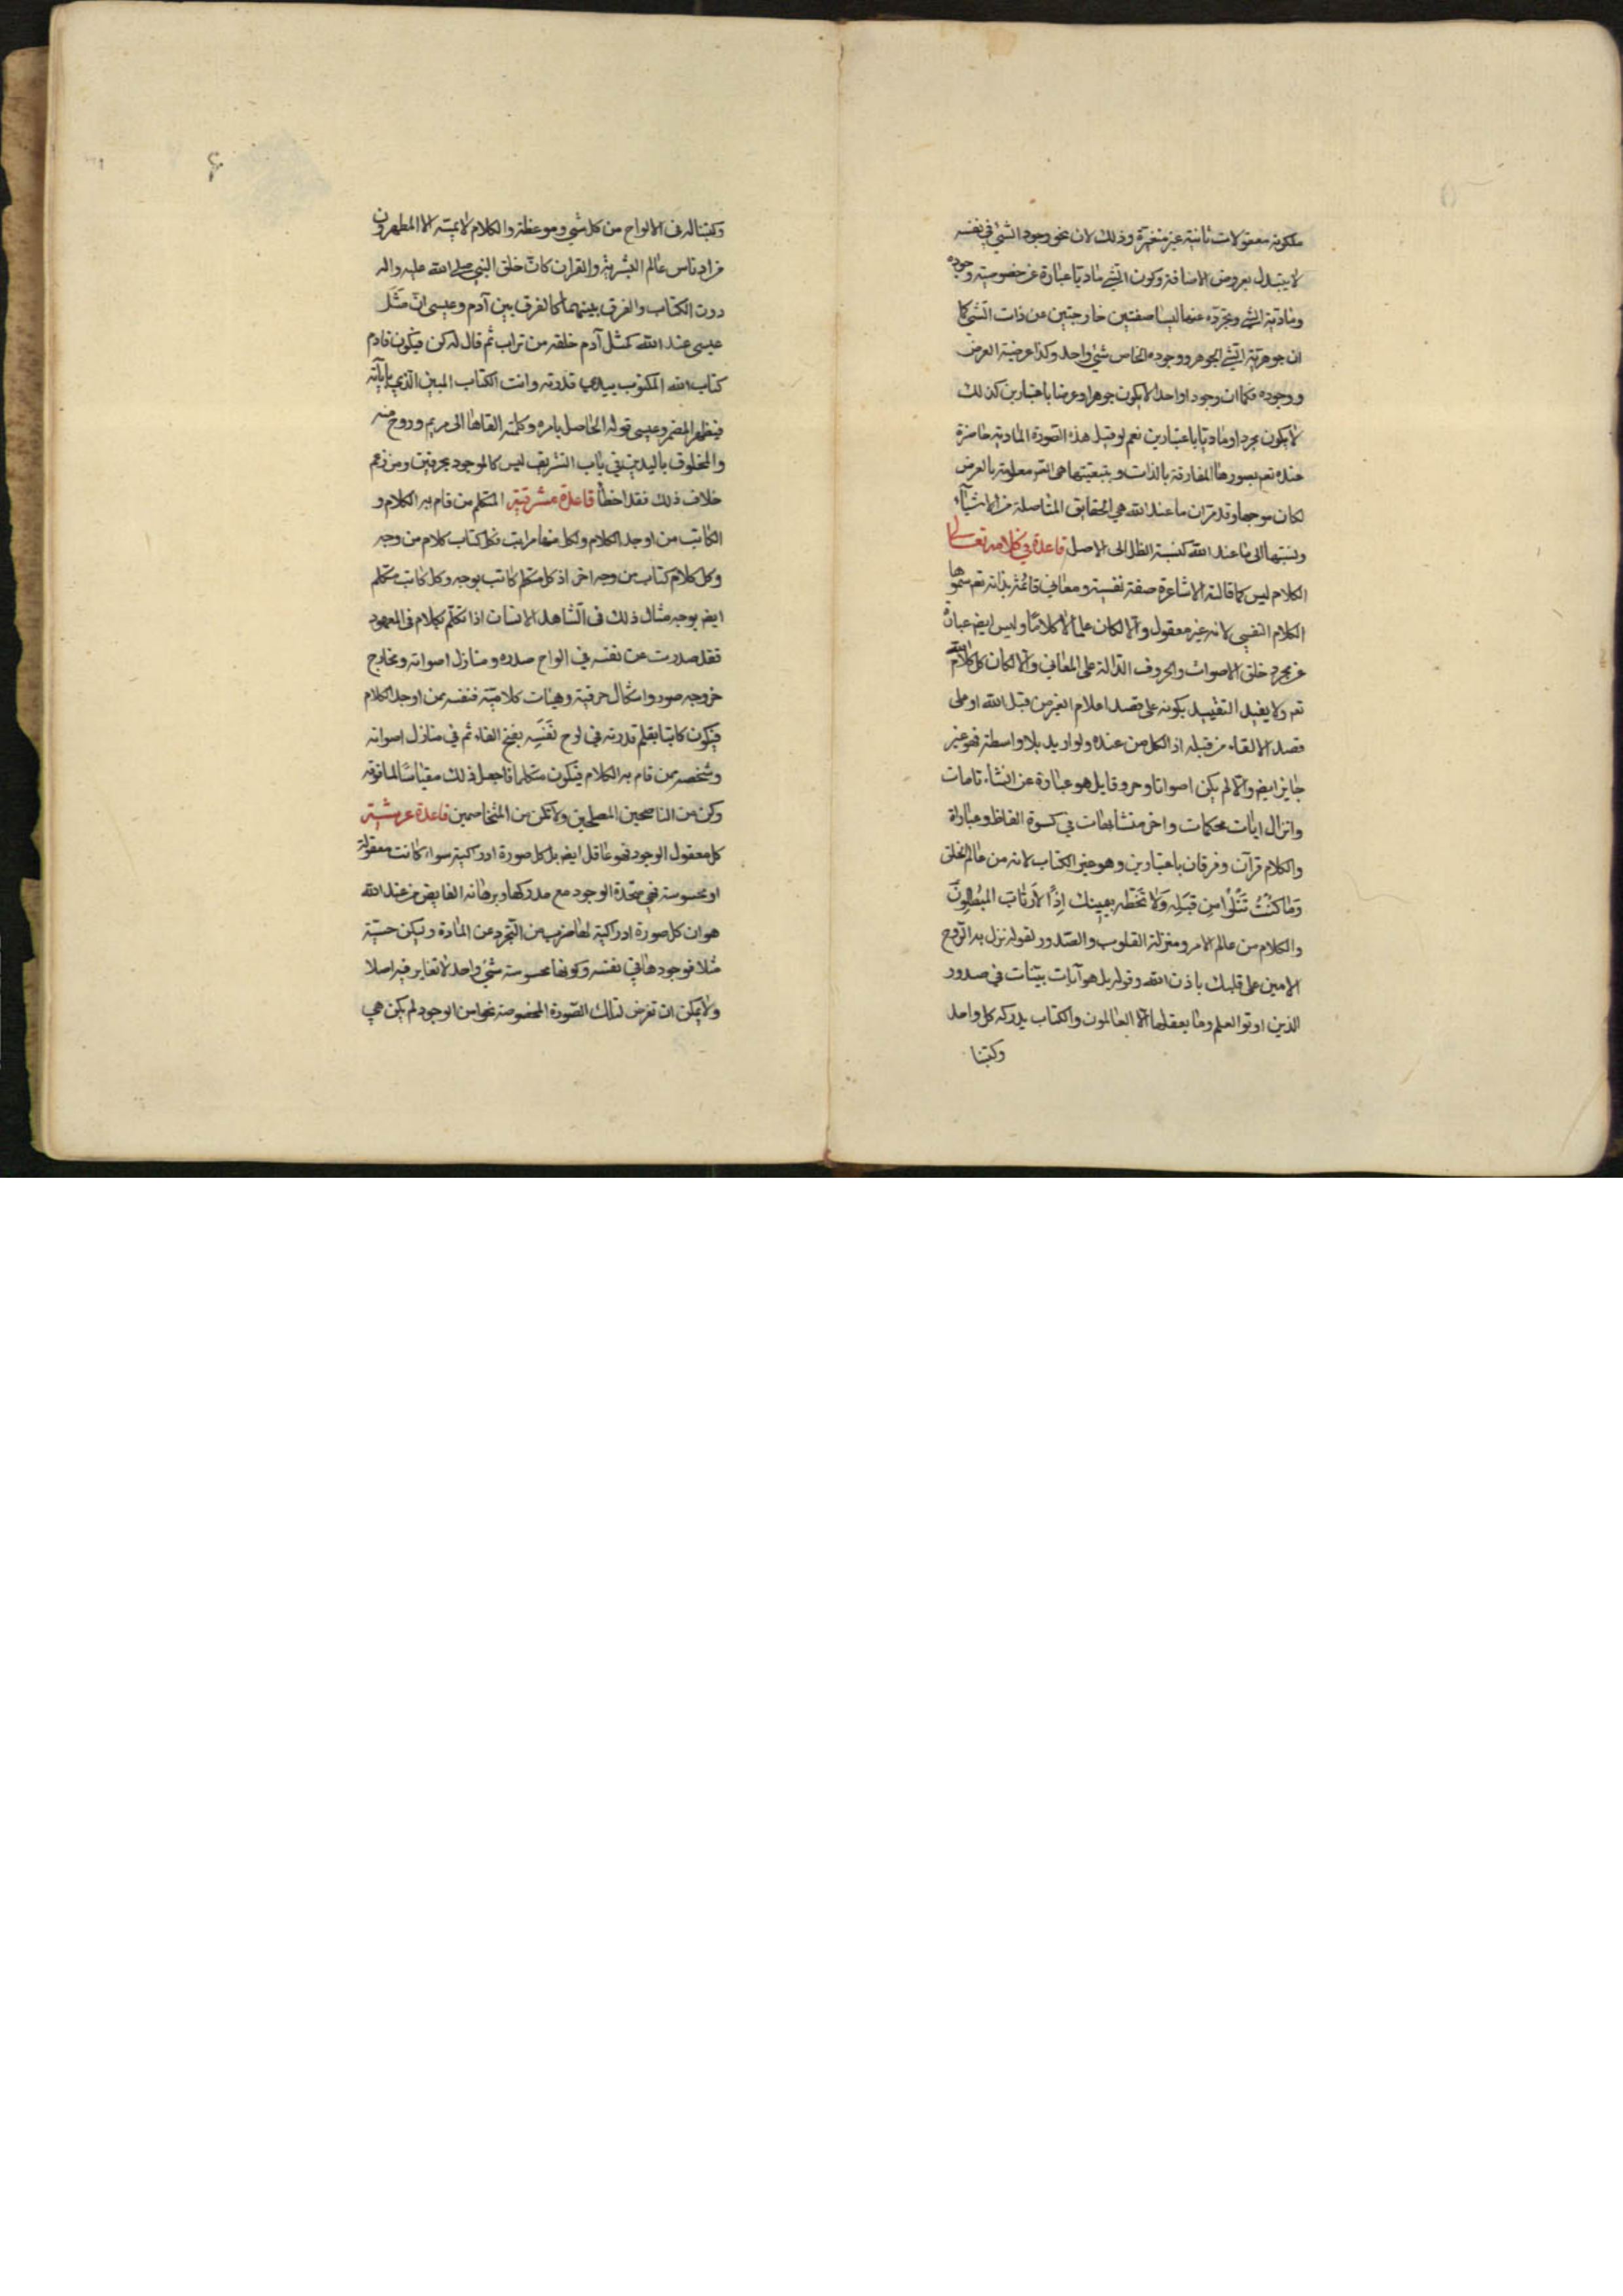 ملكوته معقولات ثابتة غير متغيرة وذلك لان نحو وجود الشئ في نفسه
لا يتبدل بعروض الاضافة وكون الشئ ماديا عبارة عن خصوصية وجوده
ومادية الشئ وتجرده عنها ليسا صفتين خارجتين عن ذات الشئ كما
ان جوهرية الشئ الجوهر ووجوده الخاص شئ واحد وكذا عرضية العرض
ووجوده فكما ان وجودا واحدا لا يكون جوهرا وعرضا باعتبارين كذلك
لا يكون مجردا وماديا باعتبارين نعم لو قيل هذه الصورة المادية حاضرة
عنده تعم بصورها المفارقة بالذات وبتبعيتها هي ايضم معلومة بالعرض
لكان موجها وقد مر ان ما عند الله هي الحقايق المتاصلة من الاشيآء
ونسبتها الى ما عند الله كنسبة الظل الى الاصل قاعدة في كلامه تعالى
الكلام ليس كما قالته الاشاعرة صفة نفسية ومعاني قائمة بذاته تعم سموها
الكلام النفسي لانه غير معقول والا لكان علما لا كلاما وليس ايضم عبارة
عن مجرد خلق الاصوات والحروف الدالة على المعاني والا لكان كل كلام كلام الله
تعم ولا يفيد التقييد بكونه على قصد اعلام الغير من قبل الله او على
قصد الالقاء من قبله اذ الكل من عنده ولو اريد بلا واسطة فهو غير
جايز ايضم والا لم يكن اصواتا وحروفا بل هو عبارة عن انشاء تامات
وانزال ايات محكمات واخر متشابهات في كسوة الفاظ وعبارات
والكلام قرآن وفرقان باعتبارين وهو غير الكتاب لانه من عالم الخلق
وَمَا كُنْتَ تَتْلُوا مِن قَبْلِه وَلَا تَخُطّه بيمينك اِذًا لَارتَابَ المُبْطِلُونَ
والكلام من عالم الامر ومنزلة القلوب والصدور لقوله نزل به الروح
الامين على قلبك باذن الله وقوله بل هو آيات بينات في صدور
الذين اوتوا العلم وما يعقلها الا العالمون والكتاب يدركه كل واحد
وكتبنا
۶
وكتبنا له في الالواح من كل شئ وموعظة والكلام لا يمسه الا المطهرون
من ادناس عالم البشرية والقران كان خلق النبي صلى الله عليه واله
دون الكتاب والفرق بينهما كالفرق بين آدم وعيسى انّ مَثَلَ
عيسى عند الله كمثل آدم خلقه من تراب ثم قال له كن فيكون فادم
كتاب الله المكتوب بيدي قدرته وانت الكتاب المبين الذي باياته
فيظهر المضمر وعيسى قوله الحاصل بامره وكلمته القاها الى مريم وروح منه
والمخلوق باليدين في باب التشريف ليس كالموجود بحرفين ومن زعم
خلاف ذلك فقد اخطأ قاعدة مشرقية المتكلم من قام به الكلام و
الكاتب من اوجد الكلام ولكل منهما مراتب فكل كتاب كلام من وجه
وكل كلام كتاب من وجه اخر اذ كل متكلم كاتب بوجه وكل كاتب متكلم
ايضم بوجه مثال ذلك في الشاهد الانسان اذا تكلم بكلام في المعهود
فقد صدرت عن نفسه في الواح صدره ومنازل اصواته ومخارج
حروفه صور واشكال حرفية وهيئات كلامية فنفسه من اوجد الكلام
فيكون كاتبا بقلم قدرته في لوح نَفَسِه بفتح الفاء ثم في منازل اصواته
وشخصه من قام به الكلام فيكون متكلما فاجعل ذلك مقياسا لما فوقه
وكن من الناصحين المصلحين ولا تكن من المتخاصمين قاعدة عرشية
كل معقول الوجود فهو عاقل ايضم بل كل صورة ادراكية سواء كانت معقولة
او محسوسة فهي متحدة الوجود مع مدركها وبرهانه الفايض من عند الله
هو ان كل صورة ادراكية لها ضرب من التجرد عن المادة وليكن حسية
مثلا فوجودها في نفسه وكونها محسوسة شئ واحد لا تغاير فيه اصلا
ولا يمكن ان تفرض لتلك الصورة المخصوصة نحوا من الوجود لم يكن هي